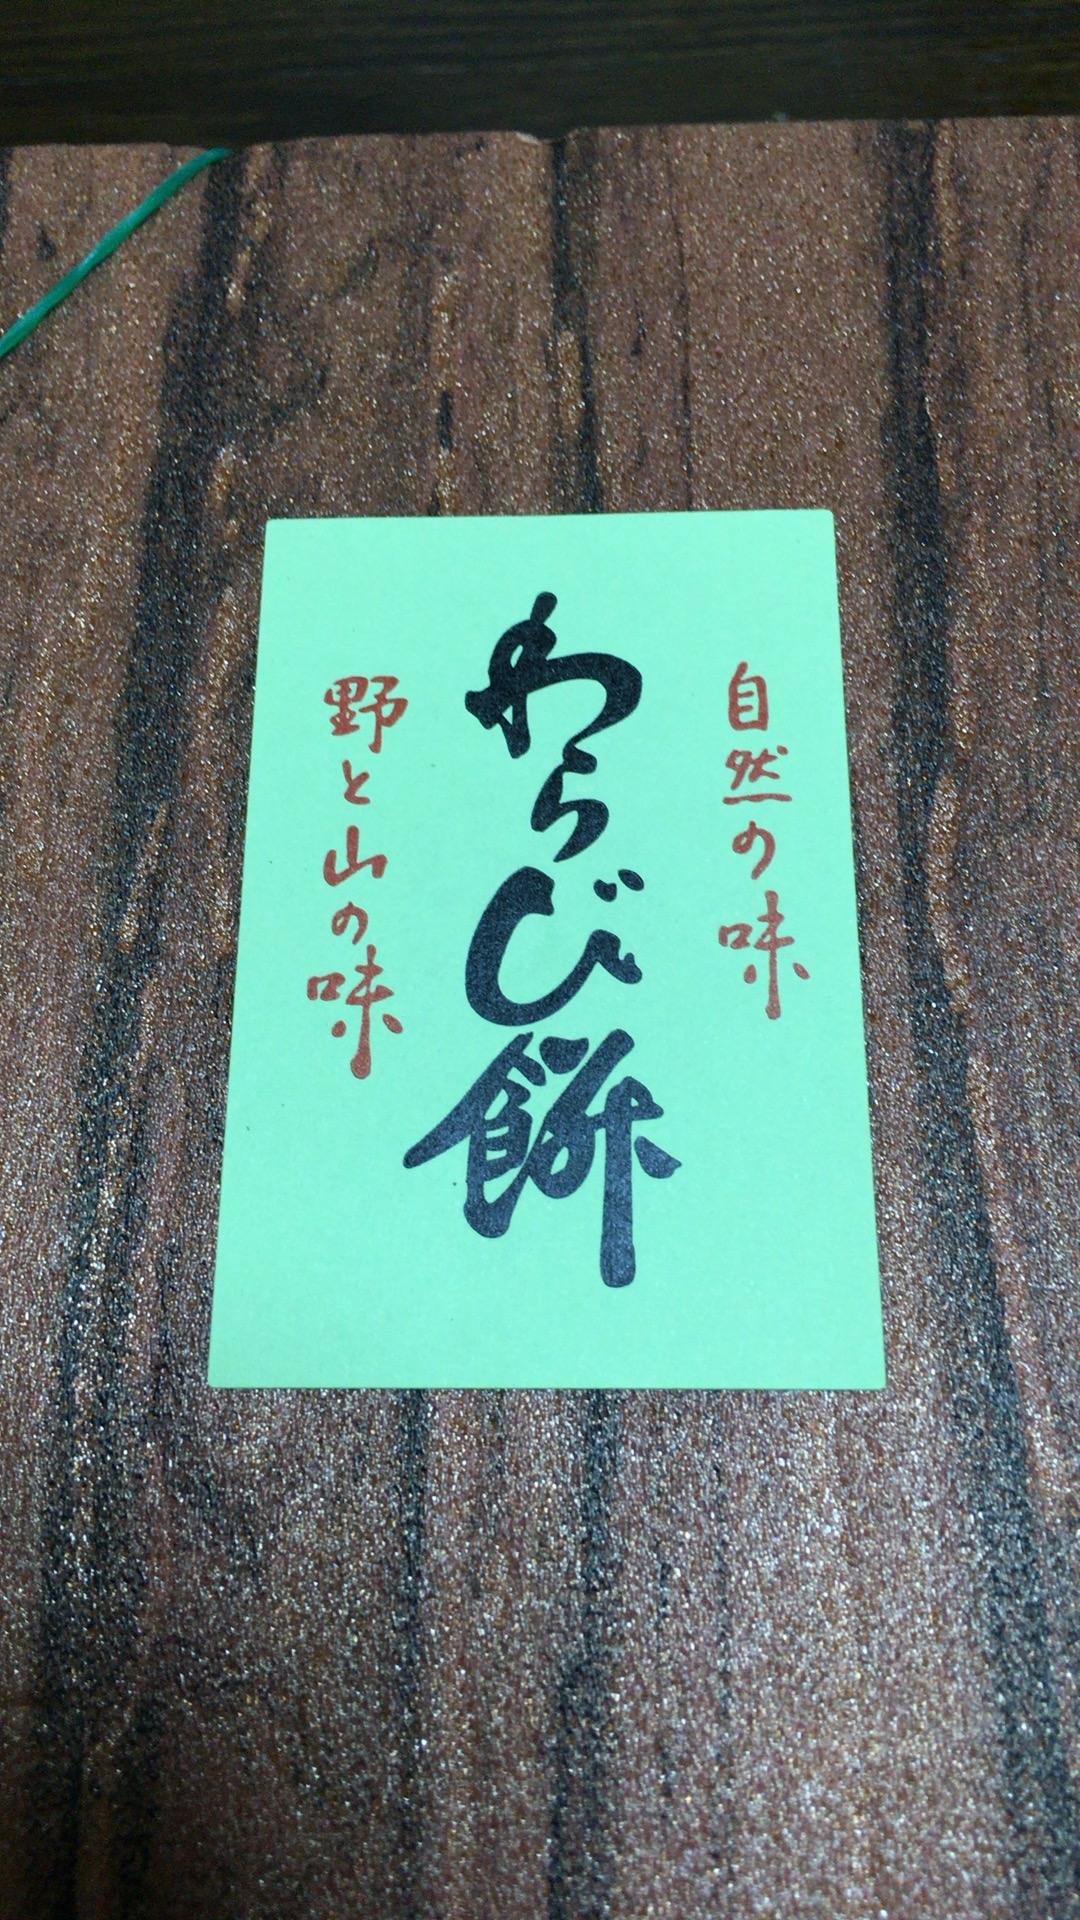 自然の味
わらび餅
野と山の味